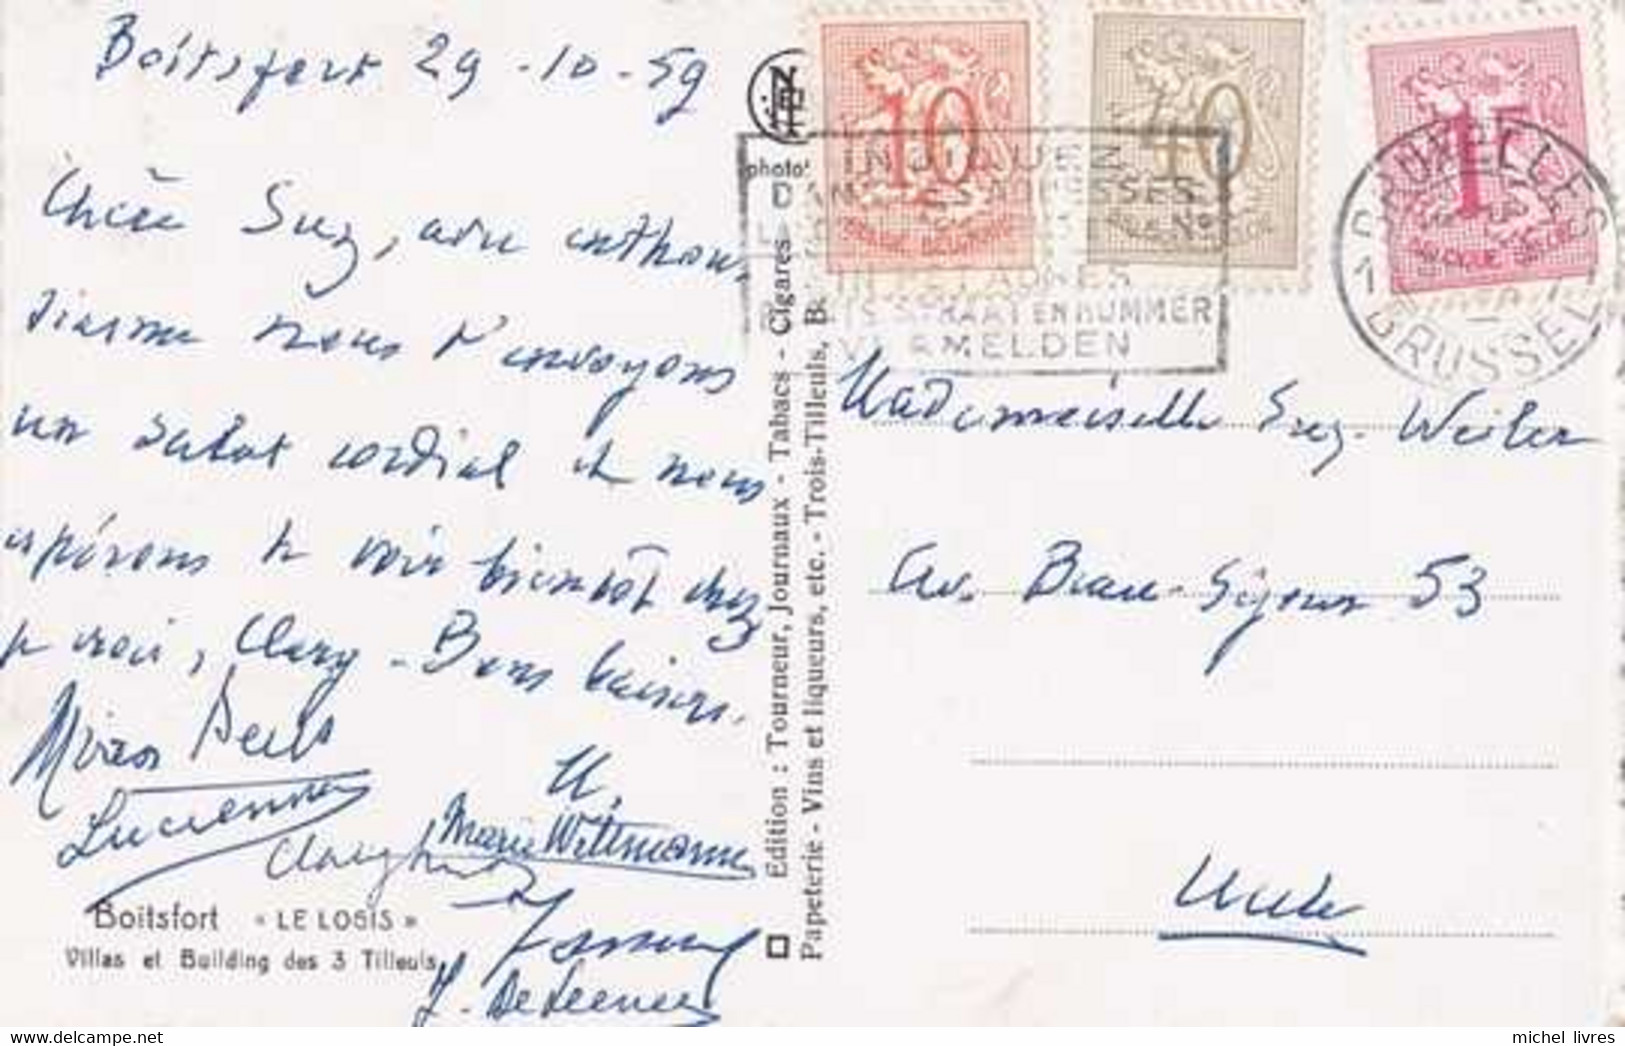 Boitsfort 29-10-59
Chère Suz, avec enthou
siasme nous t'envoyons
un salut cordial et nous
espérons te voir bientôt chez
je crois, Clary - Bons baisers.
Lucienne
Marie Wittmann
Boitsfort « LE LOGIS »
Villas et Building des 3 Tilleuls
Edition : Tourneur, Journaux - Tabacs - Cigares
Papeterie - Vins et liqueurs, etc. - Trois-Tilleuls, B
10
40
1F
INDIQUEZ
DANS LES ADRESSES
No
STRAAT EN NUMMER
VERMELDEN
BRUXELLES
BRUSSEL
Mademoiselle Suz. Weiler
Av. Beau-Séjour 53
Uccle
michel_livres www.delcampe.net